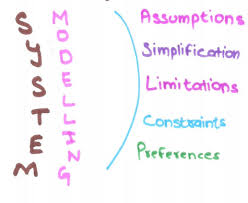 SYSTEM
MODELLING
Assumptions
Simplification
Limitations
Constraints
Preferences